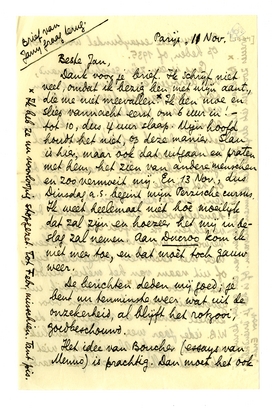 Brief van
Jany graag terug.
Parijs, 10 Nov.
Beste Jan,
Dank voor je brief. Ik schrijf niet
veel, omdat ik bezig ben met mijn aant.,
die me niet meevallen. Ik ben moe en
sliep vannacht eerst om 6 uur in: –
tot 10, dan 4 uur slaap. Mijn hoofd
houdt het niet, op deze manier. Slau
is hier, maar ook dat uitgaan en praten
met hem, het zien van andere menschen
en zoo vermoeit mij. En 13 Nov., dus
Dinsdag a.s. begint mijn Perzische cursus.
Ik weet heelemaal niet hoe moeilijk
dat zal zijn en hoezeer het mij in be-
slag zal nemen. Aan Ducroo kom ik
niet meer toe, en dat moet toch gauw
weer.
De berichten deden mij goed; je
bent nu tenminste weer wat uit de
onzekerheid, al blijft het rotzooi,
goedbeschouwd.
Het idee van Boucher (essays van
Menno) is prachtig. Dan moet het ook
x Ik heb ze nu